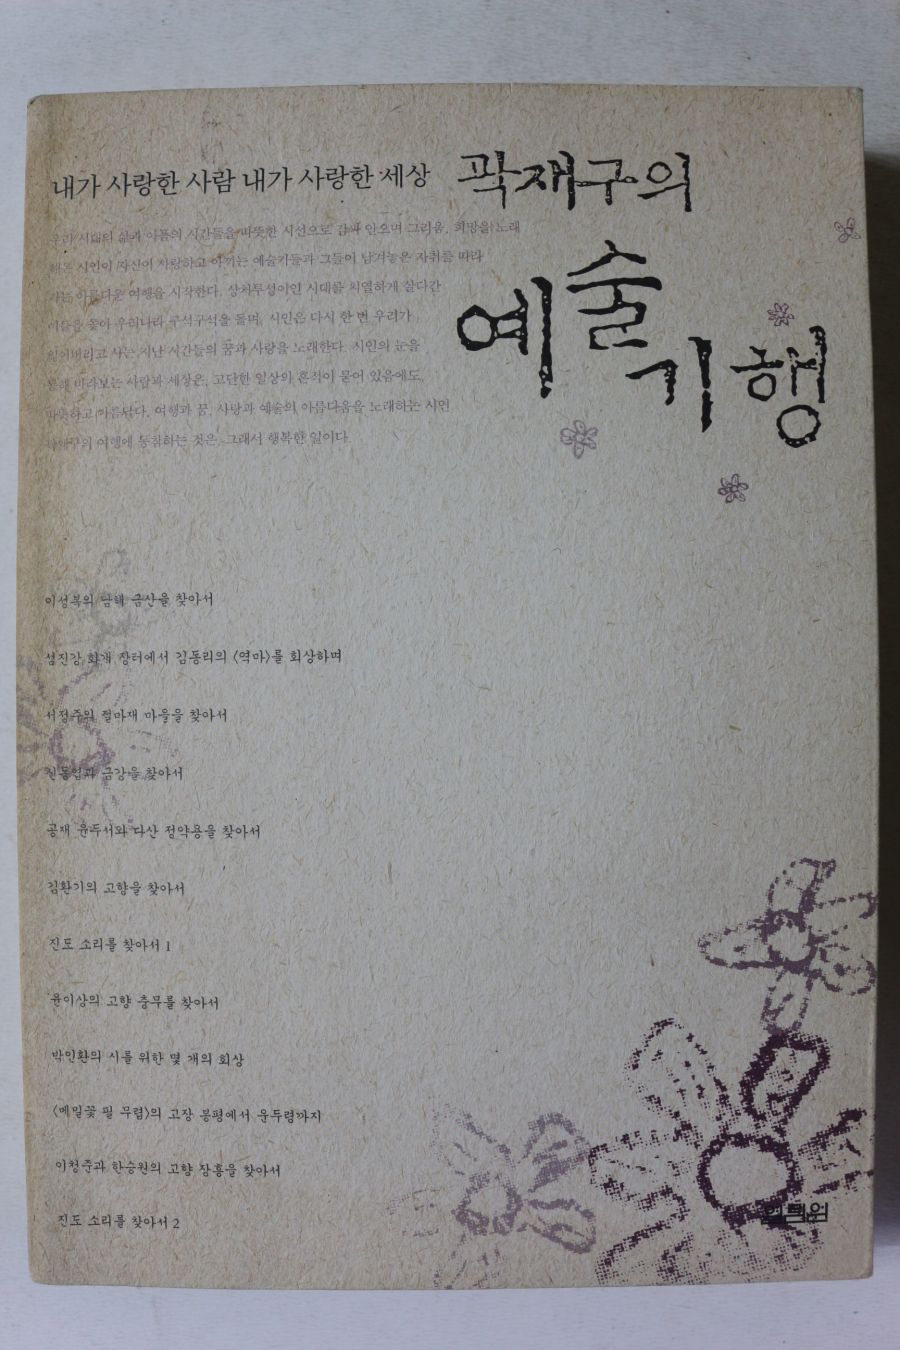 내가 사랑한 사람 내가 사랑한 세상
곽재구의
예술기행
우리 시대의 삶과 아픔의 시간들을 따뜻한 시선으로 감싸 안으며 그리움, 희망을 노래
해온 시인이 자신이 사랑하고 아끼는 예술가들과 그들이 남겨놓은 자취를 따라
가는 아름다운 여행을 시작한다. 상처투성이인 시대를 치열하게 살다간
이들을 찾아 우리나라 구석구석을 돌며, 시인은 다시 한 번 우리가
잃어버리고 사는 지난 시간들의 꿈과 사랑을 노래한다. 시인의 눈을
통해 바라보는 사람과 세상은, 고단한 일상의 흔적이 묻어 있음에도,
따뜻하고 아름답다. 여행과 꿈, 사랑과 예술의 아름다움을 노래하는 시인
곽재구의 여행에 동참하는 것은, 그래서 행복한 일이다.
이성복의 남해 금산을 찾아서
섬진강 화개 장터에서 김동리의 〈역마〉를 회상하며
서정주의 질마재 마을을 찾아서
신동엽과 금강을 찾아서
공재 윤두서와 다산 정약용을 찾아서
김환기의 고향을 찾아서
진도 소리를 찾아서 1
윤이상의 고향 충무를 찾아서
박인환의 시를 위한 몇 개의 회상
〈메밀꽃 필 무렵〉의 고장 봉평에서 운두령까지
이청준과 한승원의 고향 장흥을 찾아서
진도 소리를 찾아서 2
열림원